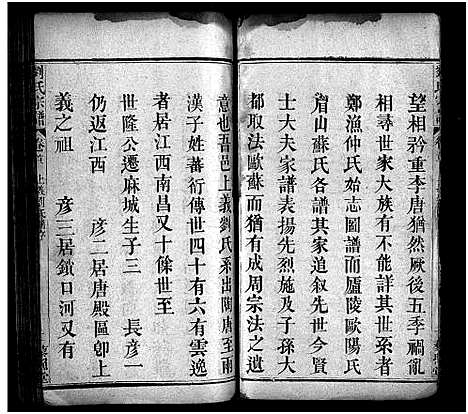 望相矜重李唐猶然厥後五季禍亂
相尋世家大族有不能詳其世者
鄭漁仲氏始志圖譜而廬陵歐陽氏
眉山蘇氏各譜其家追叙先世今賢
士大夫家譜表揚先烈示子孫大
都取法歐蘇而猶有成周宗法之遺
意也吾邑上義劉氏系出陶唐至兩
漢子姓蕃衍傳世四十有六有雲逸
者居江西南昌又十餘世至
世隆公遷麻城生子三 長彥一
仍返江西 彥二居唐殿區卽上
義之祖 彥三居鎖口河又有
劉氏宗譜 卷首 上義劉氏譜序